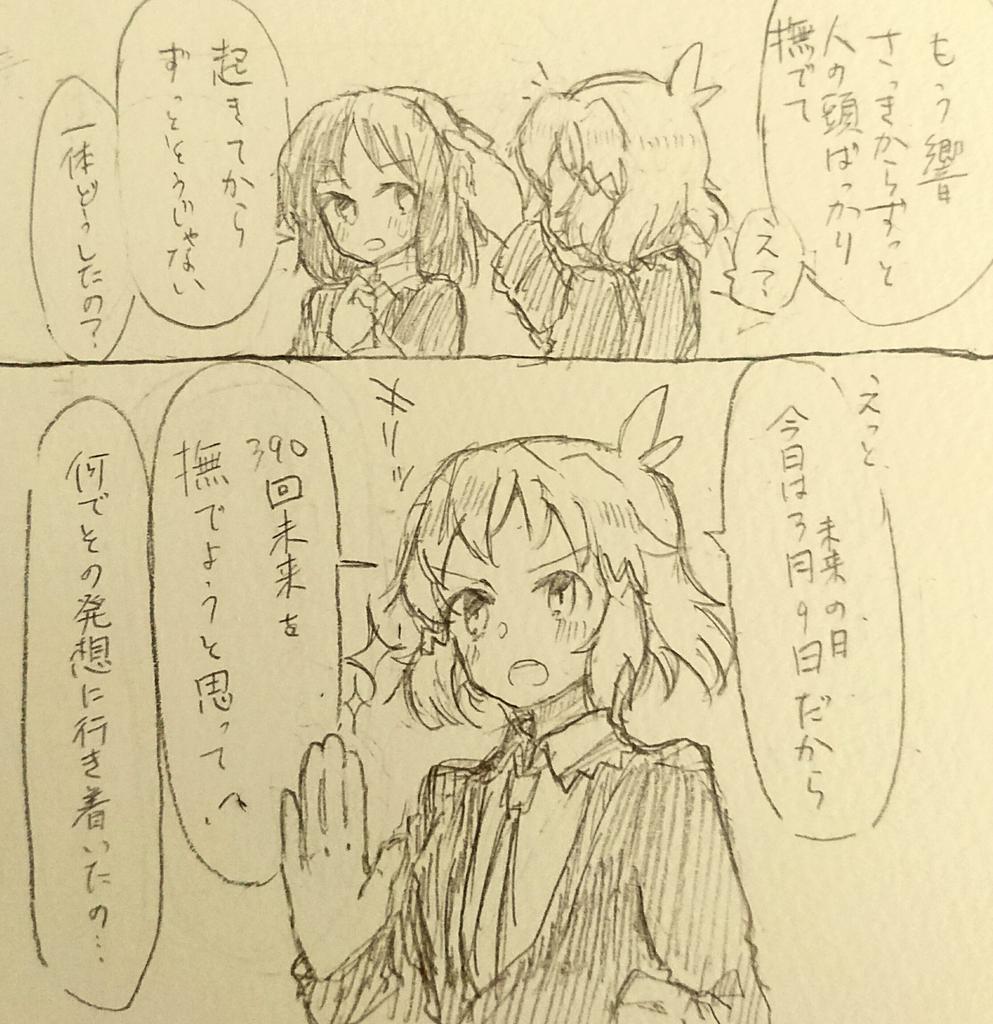 もう響
さっきからずっと
人の頭ばっかり
撫でて
え?
起きてから
ずっとそうじゃない
一体どうしたの?
えっと、
未来の日
今日は3月9日だから
キリッ
390回未来を
撫でようと思って
何でその発想に行き着いたの…